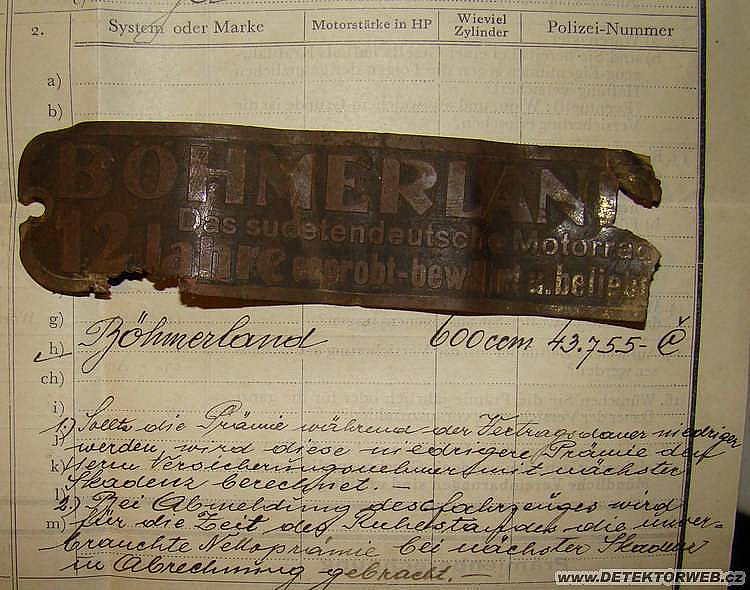 2.
System oder Marke
Motorstärke in HP
Wieviel
Zylinder
Polizei-Nummer
a)
b)
BÖHMERLAND
Das sudetendeutsche Motorrad
12 Jahre erprobt-bewährt u. beliebt
g)
h) Böhmerland 600 ccm 43.755-Č
ch)
i)
1.) Sollte die Prämie während der Vertragsdauer niedriger
j) werden, wird diese niedrigere Prämie
k) Versicherungsnehmer mit nächster
l) Skadenz berechnet. —
2.) Bei Abmeldung des Fahrzeuges wird
m) für die Zeit des Ruhestandes die unver-
brauchte Nettoprämie bei nächster Skadenz
in Abrechnung gebracht. —
www.DETEKTORWEB.cz